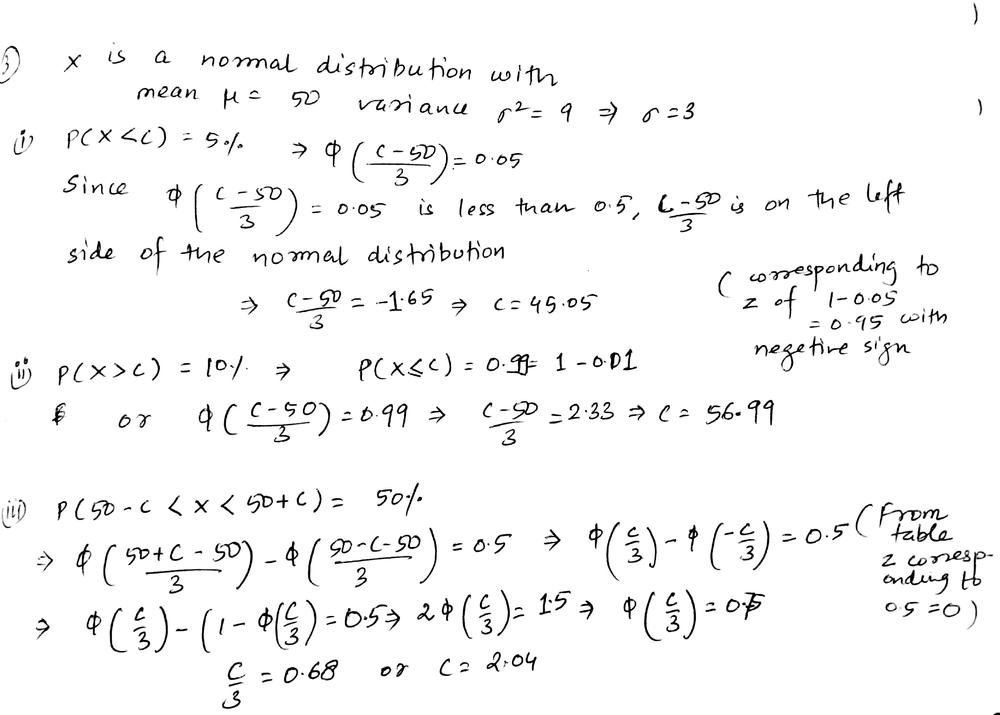 ③ X is a normal distribution with
mean μ = 50 variance σ² = 9 ⇒ σ = 3
(i) P(X < C) = 5% ⇒ Φ((C-50)/3) = 0.05
Since Φ((C-50)/3) = 0.05 is less than 0.5, (C-50)/3 is on the left
side of the normal distribution
⇒ (C-50)/3 = -1.65 ⇒ C = 45.05
(corresponding to
z of 1-0.05
= 0.95 with
negetive sign
(ii) P(X > C) = 10% ⇒ P(X ≤ C) = 0.99 = 1 - 0.01
or Φ((C-50)/3) = 0.99 ⇒ (C-50)/3 = 2.33 ⇒ C = 56.99
(iii) P(50-C < X < 50+C) = 50%
⇒ Φ((50+C-50)/3) - Φ((50-C-50)/3) = 0.5 ⇒ Φ(C/3) - Φ(-C/3) = 0.5
(From
table
z corresp-
onding to
0.5 = 0)
⇒ Φ(C/3) - (1 - Φ(C/3) = 0.5 ⇒ 2Φ(C/3) = 1.5 ⇒ Φ(C/3) = 0.75
C/3 = 0.68 or C = 2.04